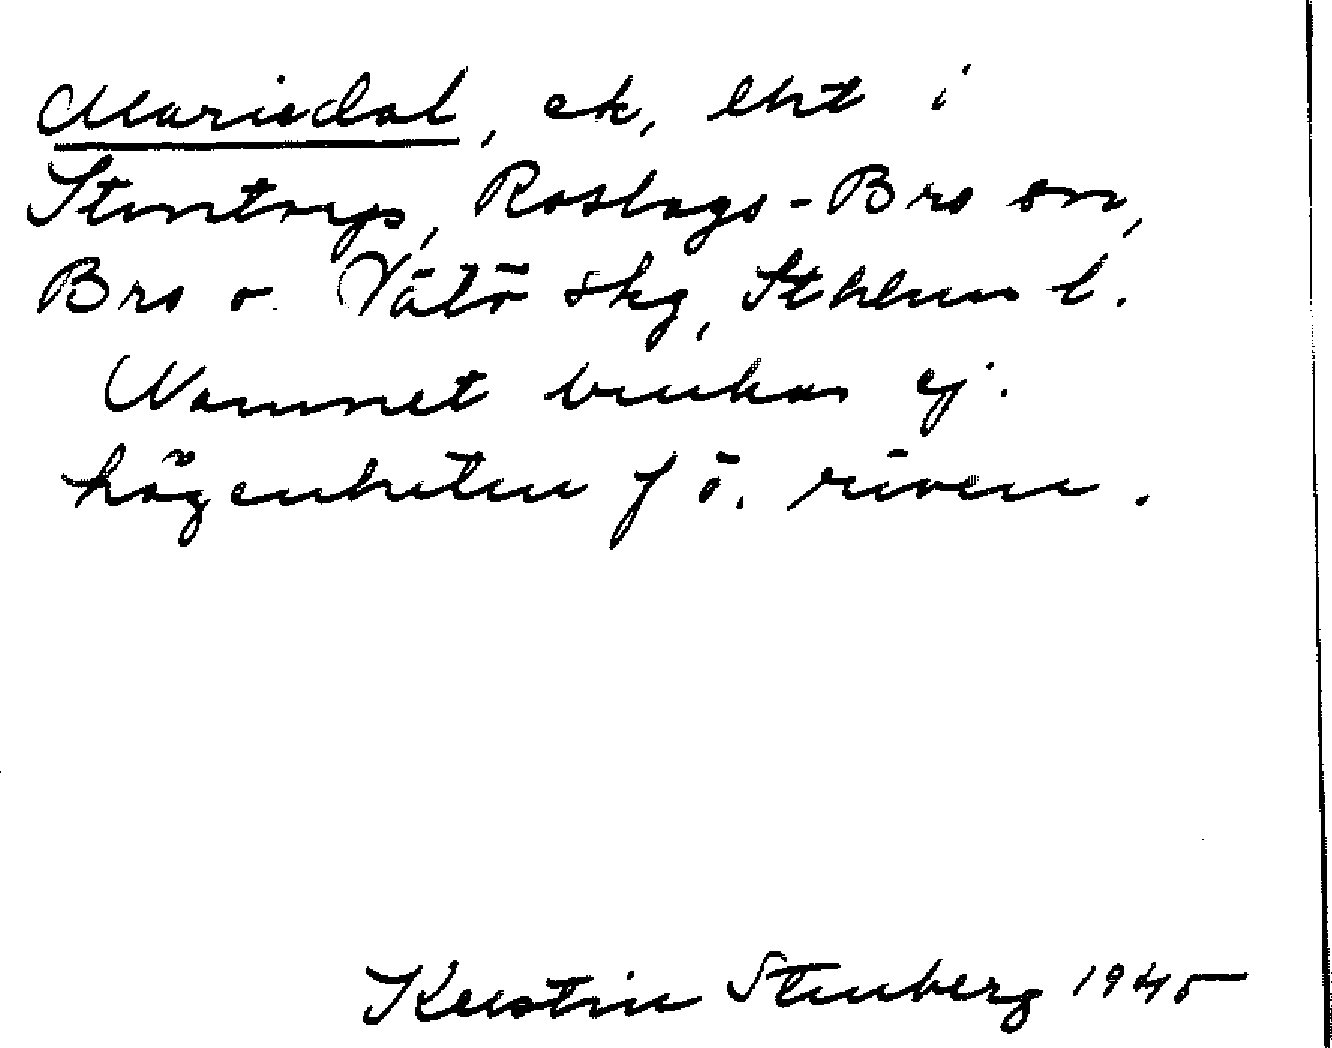 Mariedal, ek, lht i
Stentorp, Roslags-Bro sn,
Bro o. Vätö skg, Sthlms l.
Namnet brukas ej.
lägenheten f ö. riven.
Kerstin Stenberg 1945